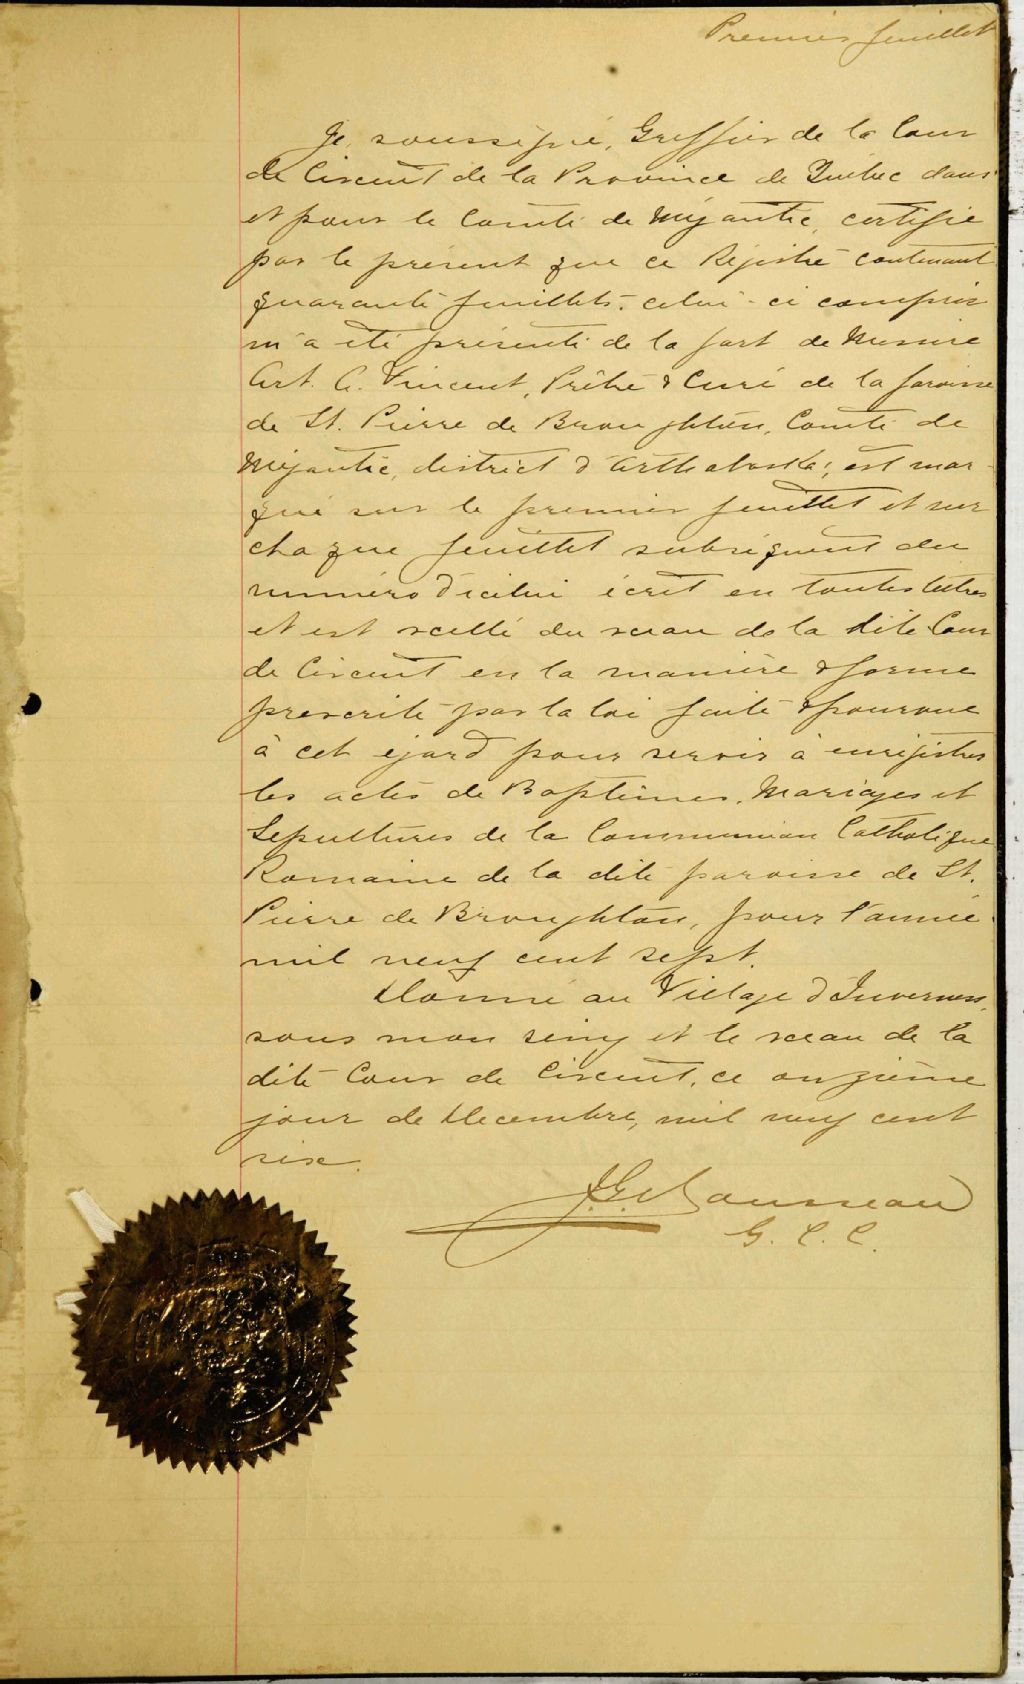 Premier feuillet
Je, soussigné, Greffier de la Cour
de Circuit de la Province de Québec dans
et pour le Comté de Mégantic, certifie
par le présent que ce Régistre contenant
quarante feuillets, celui-ci compris
m'a été présenté de la part de Messire
Art. A. Vincent, Prêtre & Curé de la paroisse
de St. Pierre de Broughton, Comté de
Mégantic, district d'Arthabaska; est mar-
qué sur le premier feuillet et sur
chaque feuillet subséquent du
numéro d'icelui écrit en toutes lettres
et est scellé du sceau de la dite Cour
de Circuit en la manière & forme
prescrite par la loi faite & pourvue
à cet égard pour servir à enrégistrer
les actes de Baptêmes, Mariages et
Sépultures de la Communion Catholique
Romaine de la dite paroisse de St.
Pierre de Broughton, pour l'année
mil neuf cent sept.
Donné au Village d'Inverness,
sous mon seing et le sceau de la
dite Cour de Circuit, ce onzième
jour de Decembre, mil neuf cent
six.
Rousseau
G. C. C.